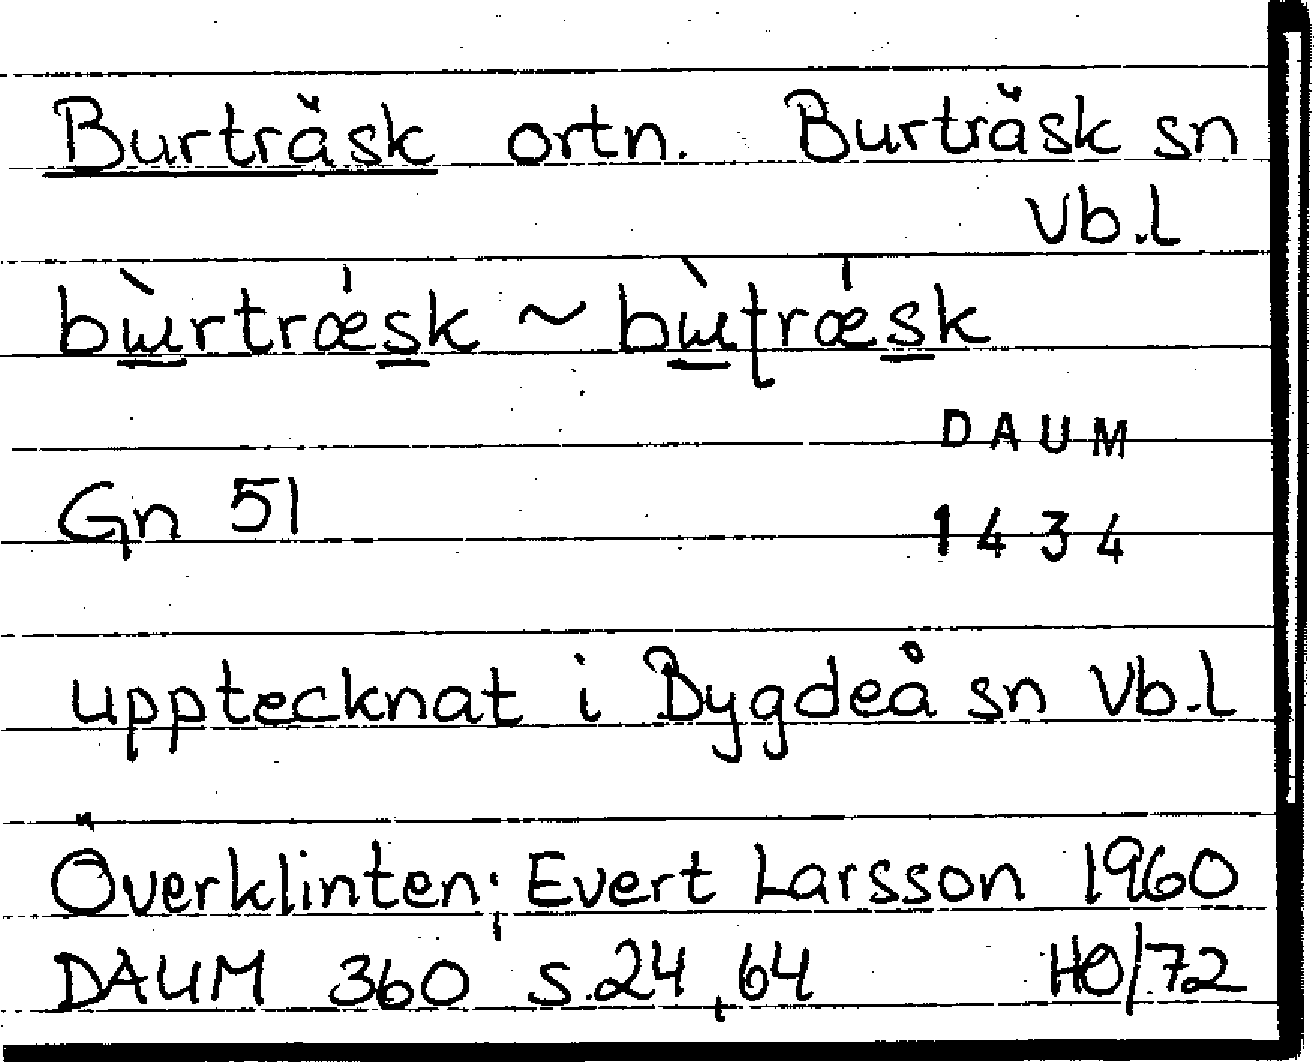 Burträsk ortn. Burträsk sn
Vb.l
bɯ̀rtrǽsk ~ bɯ̀ʈrǽsk
DAUM
Gn 51
1434
upptecknat i Bygdeå sn Vb.l
Överklinten; Evert Larsson 1960
DAUM 360 s.24, 64 HO/72